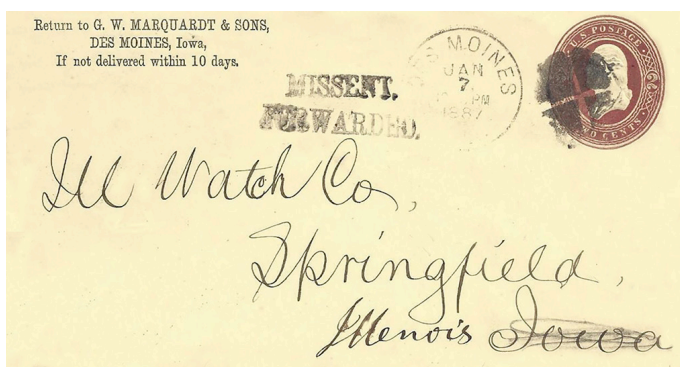 Return to G. W. MARQUARDT & SONS,
DES MOINES, Iowa,
If not delivered within 10 days.
MISSENT.
FORWARDED.
DES MOINES
JAN
7
PM
1887
U.S. POSTAGE
TWO CENTS
Ill Watch Co,
Springfield,
Illenois Iowa